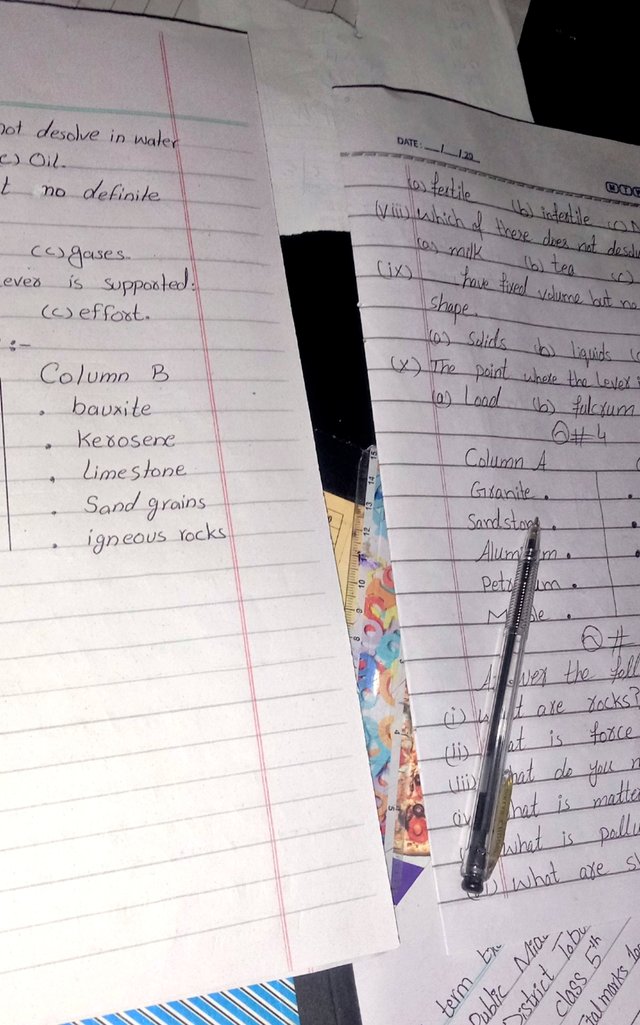 not desolve in water
(c) Oil.
t no definite
(c) gases.
ever is supported:
(c) effort.
:-
Column B
. bauxite
. Kerosene
. Limestone
. Sand grains
. igneous rocks
DATE: __/__/20__
(a) fertile (b) infertile (c)
(viii) Which of these does not desolv
(a) milk (b) tea (c)
(ix) have fixed volume but no
shape.
(a) Solids (b) liquids (
(x) The point where the lever
(a) Load (b) fulcrum
Q#4
Column A
Granite.
Sandston .
Alum m .
Pet um .
M le .
Q#
the foll
(i) t are rocks?
(ii) at is force
(iii) hat do you
(iv hat is matter
what is pollu
What are s
term
Public
District
class 5th
tal marks